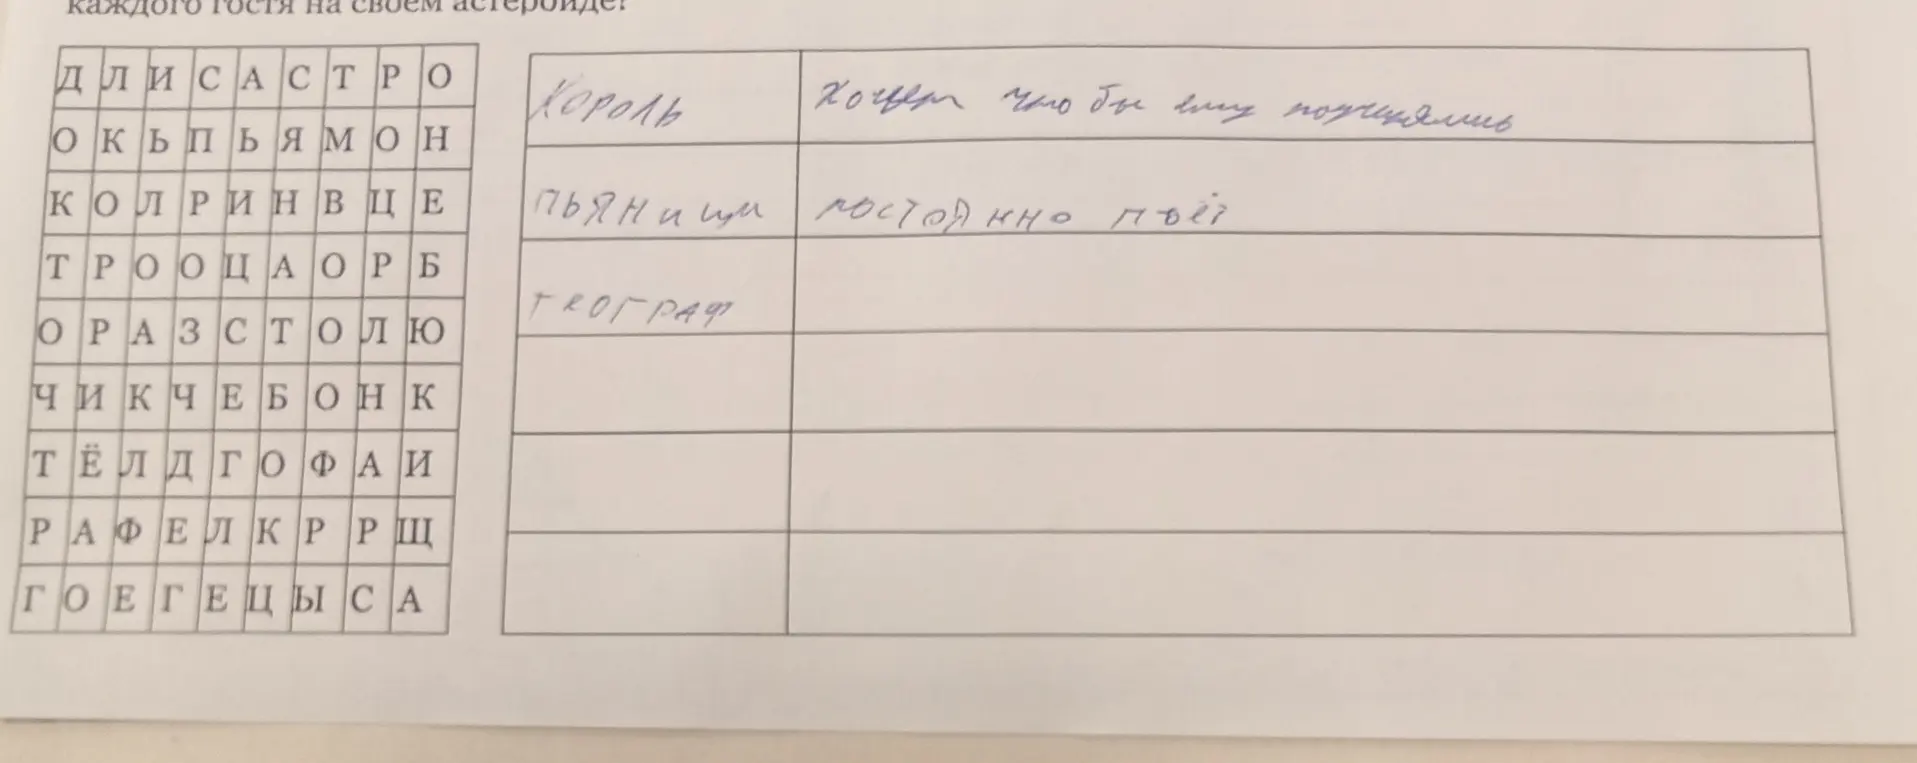 каждого гостя на своём астероиде?
Д Л И С А С Т Р О
О К Ь П Ь Я М О Н
К О Л Р И Н В Ц Е
Т Р О О Ц А О Р Б
О Р А З С Т О Л Ю
Ч И К Ч Е Б О Н К
Т Ё Л Д Г О Ф А И
Р А Ф Е Л К Р Р Щ
Г О Е Г Е Ц Ы С А
Король Хочет что бы ему подчинялись
пьяници постоянно пьёт
географ